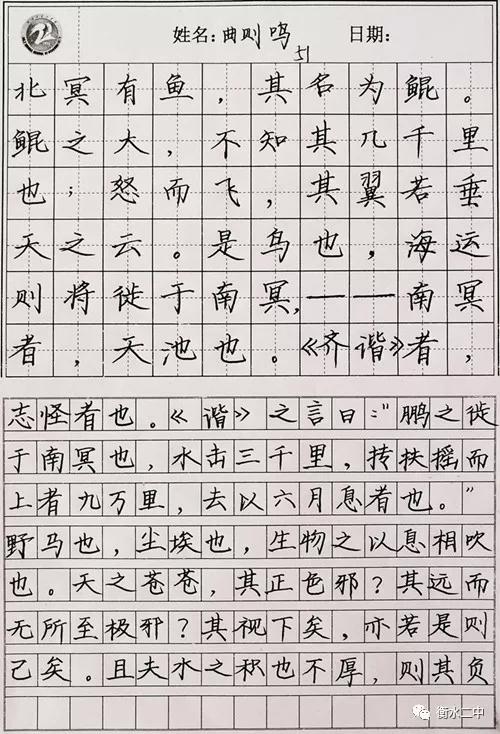 姓名: 曲则鸣 日期:
51
北冥有鱼，其名为鲲。
鲲之大，不知其几千里
也；怒而飞，其翼若垂
天之云。是鸟也，海运
则将徙于南冥，——南冥
者，天池也。《齐谐》者，
志怪者也。《谐》之言曰：“鹏之徙
于南冥也，水击三千里，抟扶摇而
上者九万里，去以六月息者也。”
野马也，尘埃也，生物之以息相吹
也。天之苍苍，其正色邪？其远而
无所至极邪？其视下矣，亦若是则
已矣。且夫水之积也不厚，则其负
衡水二中